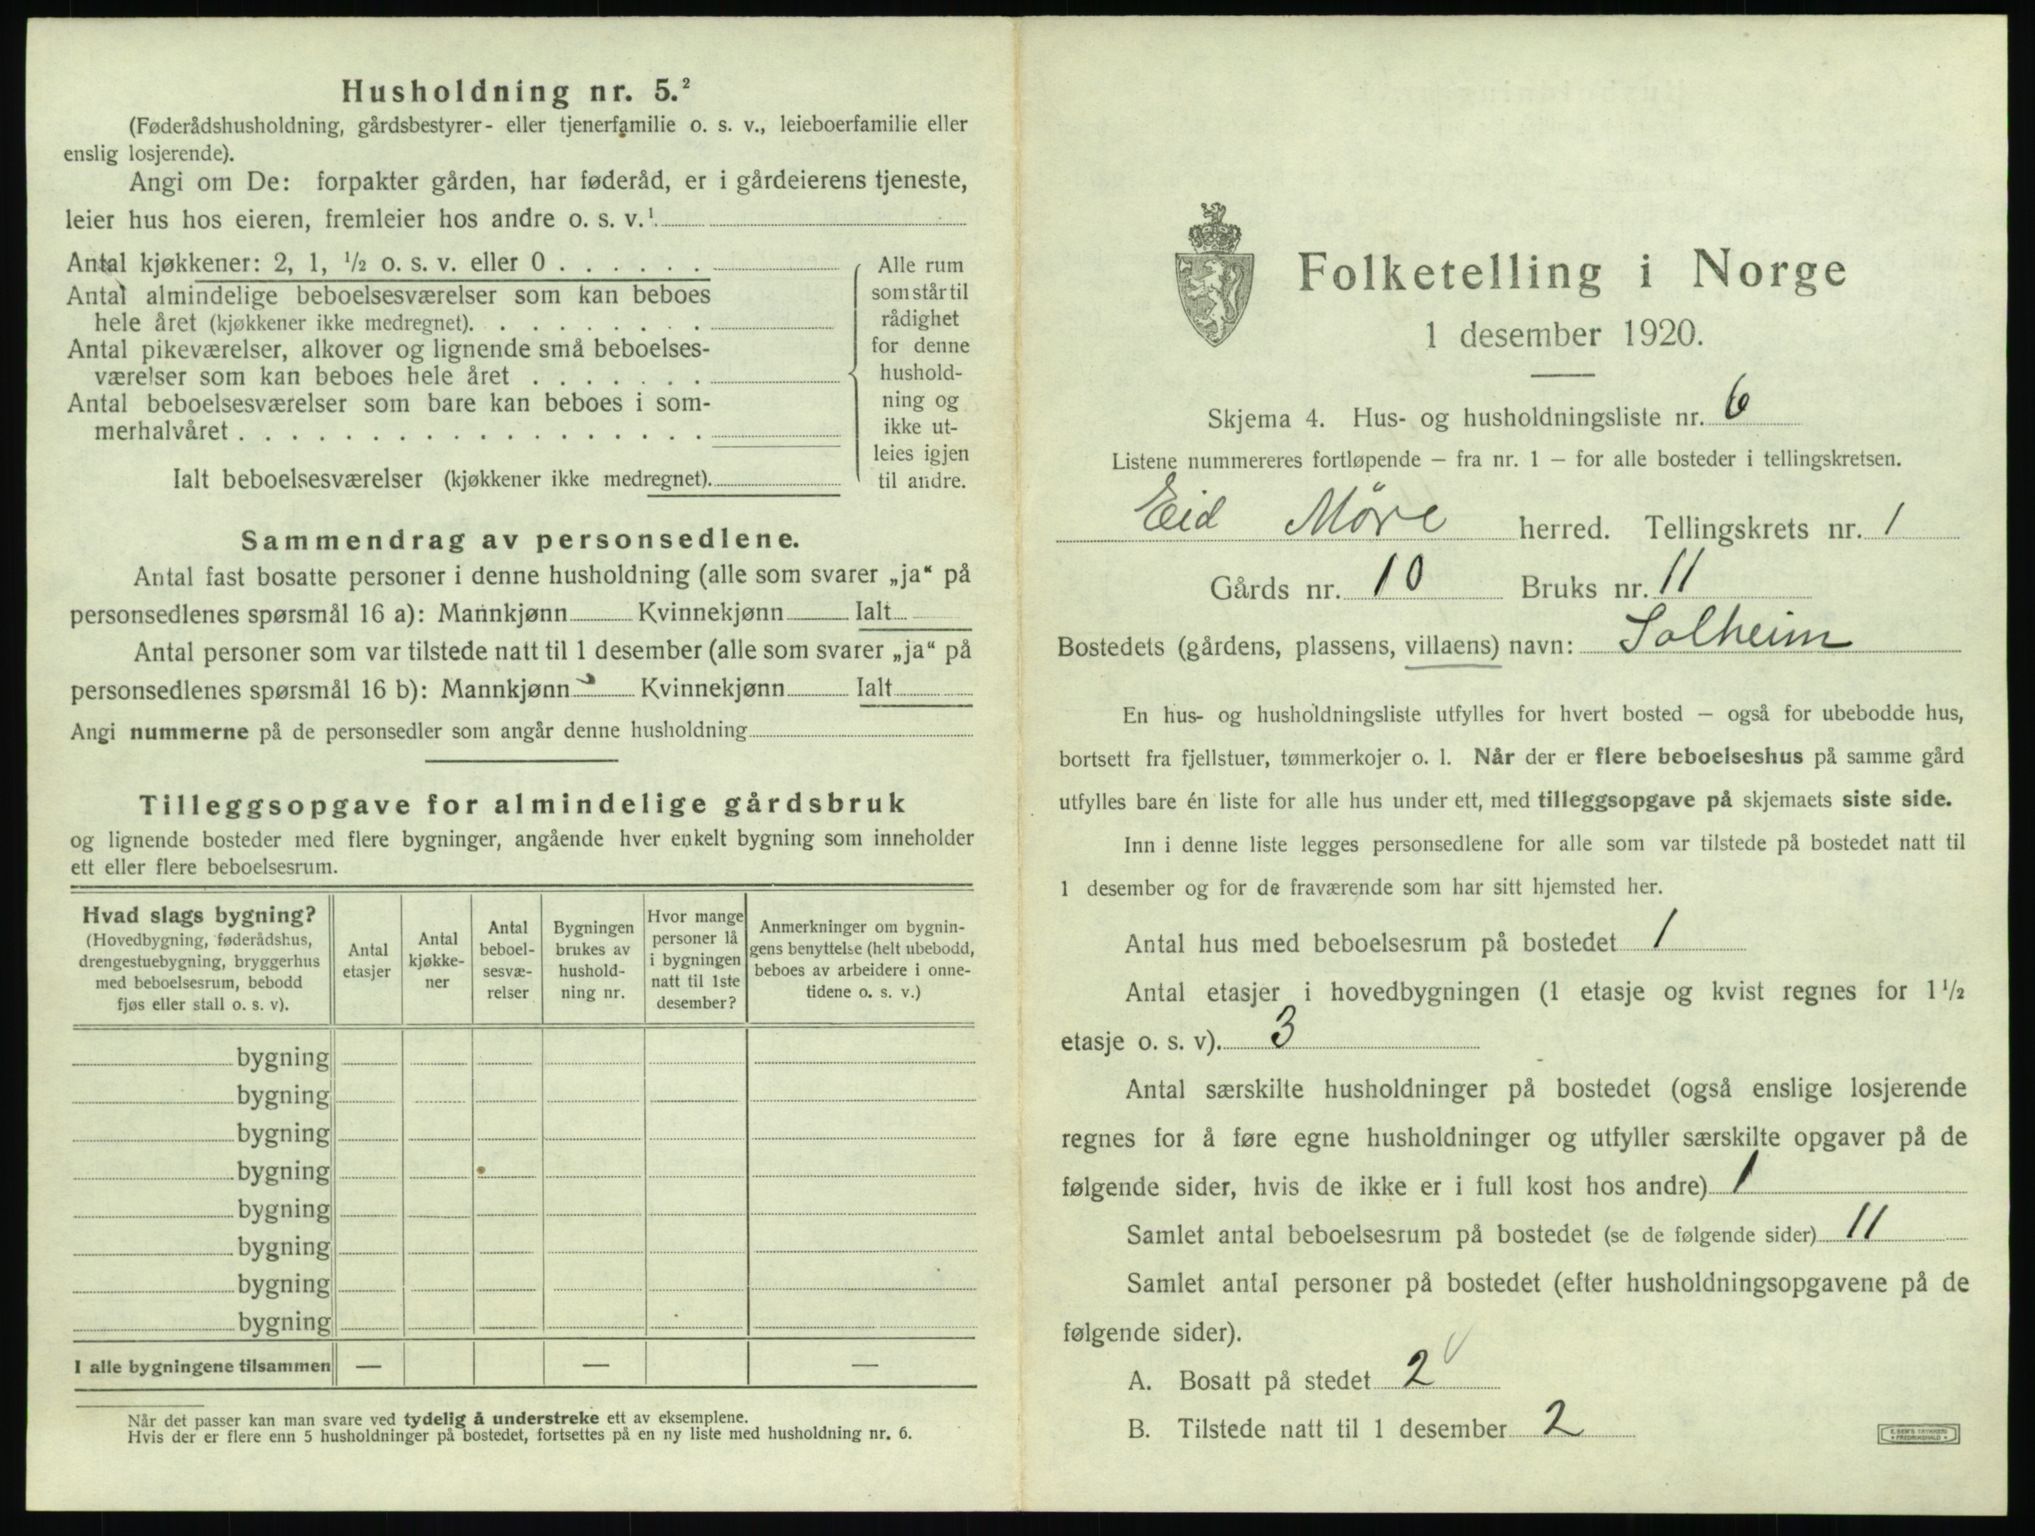 Husholdning nr. 5.²
(Føderådshusholdning, gårdsbestyrer- eller tjenerfamilie o. s. v., leieboerfamilie eller
enslig losjerende).
Angi om De: forpakter gården, har føderåd, er i gårdeierens tjeneste,
leier hus hos eieren, fremleier hos andre o. s. v.¹
Antal kjøkkener: 2, 1, ½ o. s. v. eller 0 . . . . . .
Antal almindelige beboelsesværelser som kan beboes
hele året (kjøkkener ikke medregnet). . . . . . . . .
Antal pikeværelser, alkover og lignende små beboelses-
værelser som kan beboes hele året . . . . . . .
Antal beboelsesværelser som bare kan beboes i som-
merhalvåret . . . . . . . . . . . . . . . . . .
Ialt beboelsesværelser (kjøkkener ikke medregnet).
Alle rum
som står til
rådighet
for denne
hushold-
ning og
ikke ut-
leies igjen
til andre.
Sammendrag av personsedlene.
Antal fast bosatte personer i denne husholdning (alle som svarer „ja“ på
personsedlenes spørsmål 16 a): Mannkjønn Kvinnekjønn Ialt
Antal personer som var tilstede natt til 1 desember (alle som svarer „ja“ på
personsedlenes spørsmål 16 b): Mannkjønn Kvinnekjønn Ialt
Angi nummerne på de personsedler som angår denne husholdning
Tilleggsopgave for almindelige gårdsbruk
og lignende bosteder med flere bygninger, angående hver enkelt bygning som inneholder
ett eller flere beboelsesrum.
Hvad slags bygning?
(Hovedbygning, føderådshus,
drengestuebygning, bryggerhus
med beboelsesrum, bebodd
fjøs eller stall o. s. v).
Antal
etasjer
Antal
kjøkke-
ner
Antal
beboel-
sesvæ-
relser
Bygningen
brukes av
hushold-
ning nr.
Hvor mange
personer lå
i bygningen
natt til 1ste
desember?
Anmerkninger om bygnin-
gens benyttelse (helt ubebodd,
beboes av arbeidere i onne-
tidene o. s. v.)
bygning
bygning
bygning
bygning
bygning
bygning
bygning
bygning
I alle bygningene tilsammen — — —
Når det passer kan man svare ved tydelig å understreke ett av eksemplene.
Hvis der er flere enn 5 husholdninger på bostedet, fortsettes på en ny liste med husholdning nr. 6.
Folketelling i Norge
1 desember 1920.
Skjema 4. Hus- og husholdningsliste nr. 6
Listene nummereres fortløpende – fra nr. 1 – for alle bosteder i tellingskretsen.
Eid Möre herred. Tellingskrets nr. 1
Gårds nr. 10 Bruks nr. 11
Bostedets (gårdens, plassens, villaens) navn: Solheim
En hus- og husholdningsliste utfylles for hvert bosted – også for ubebodde hus,
bortsett fra fjellstuer, tømmerkojer o. l. Når der er flere beboelseshus på samme gård
utfylles bare én liste for alle hus under ett, med tilleggsopgave på skjemaets siste side.
Inn i denne liste legges personsedlene for alle som var tilstede på bostedet natt til
1 desember og for de fraværende som har sitt hjemsted her.
Antal hus med beboelsesrum på bostedet 1
Antal etasjer i hovedbygningen (1 etasje og kvist regnes for 1½
etasje o. s. v). 3
Antal særskilte husholdninger på bostedet (også enslige losjerende
regnes for å føre egne husholdninger og utfyller særskilte opgaver på de
følgende sider, hvis de ikke er i full kost hos andre) 1
Samlet antal beboelsesrum på bostedet (se de følgende sider) 11
Samlet antal personer på bostedet (efter husholdningsopgavene på de
følgende sider).
A. Bosatt på stedet 2
B. Tilstede natt til 1 desember 2